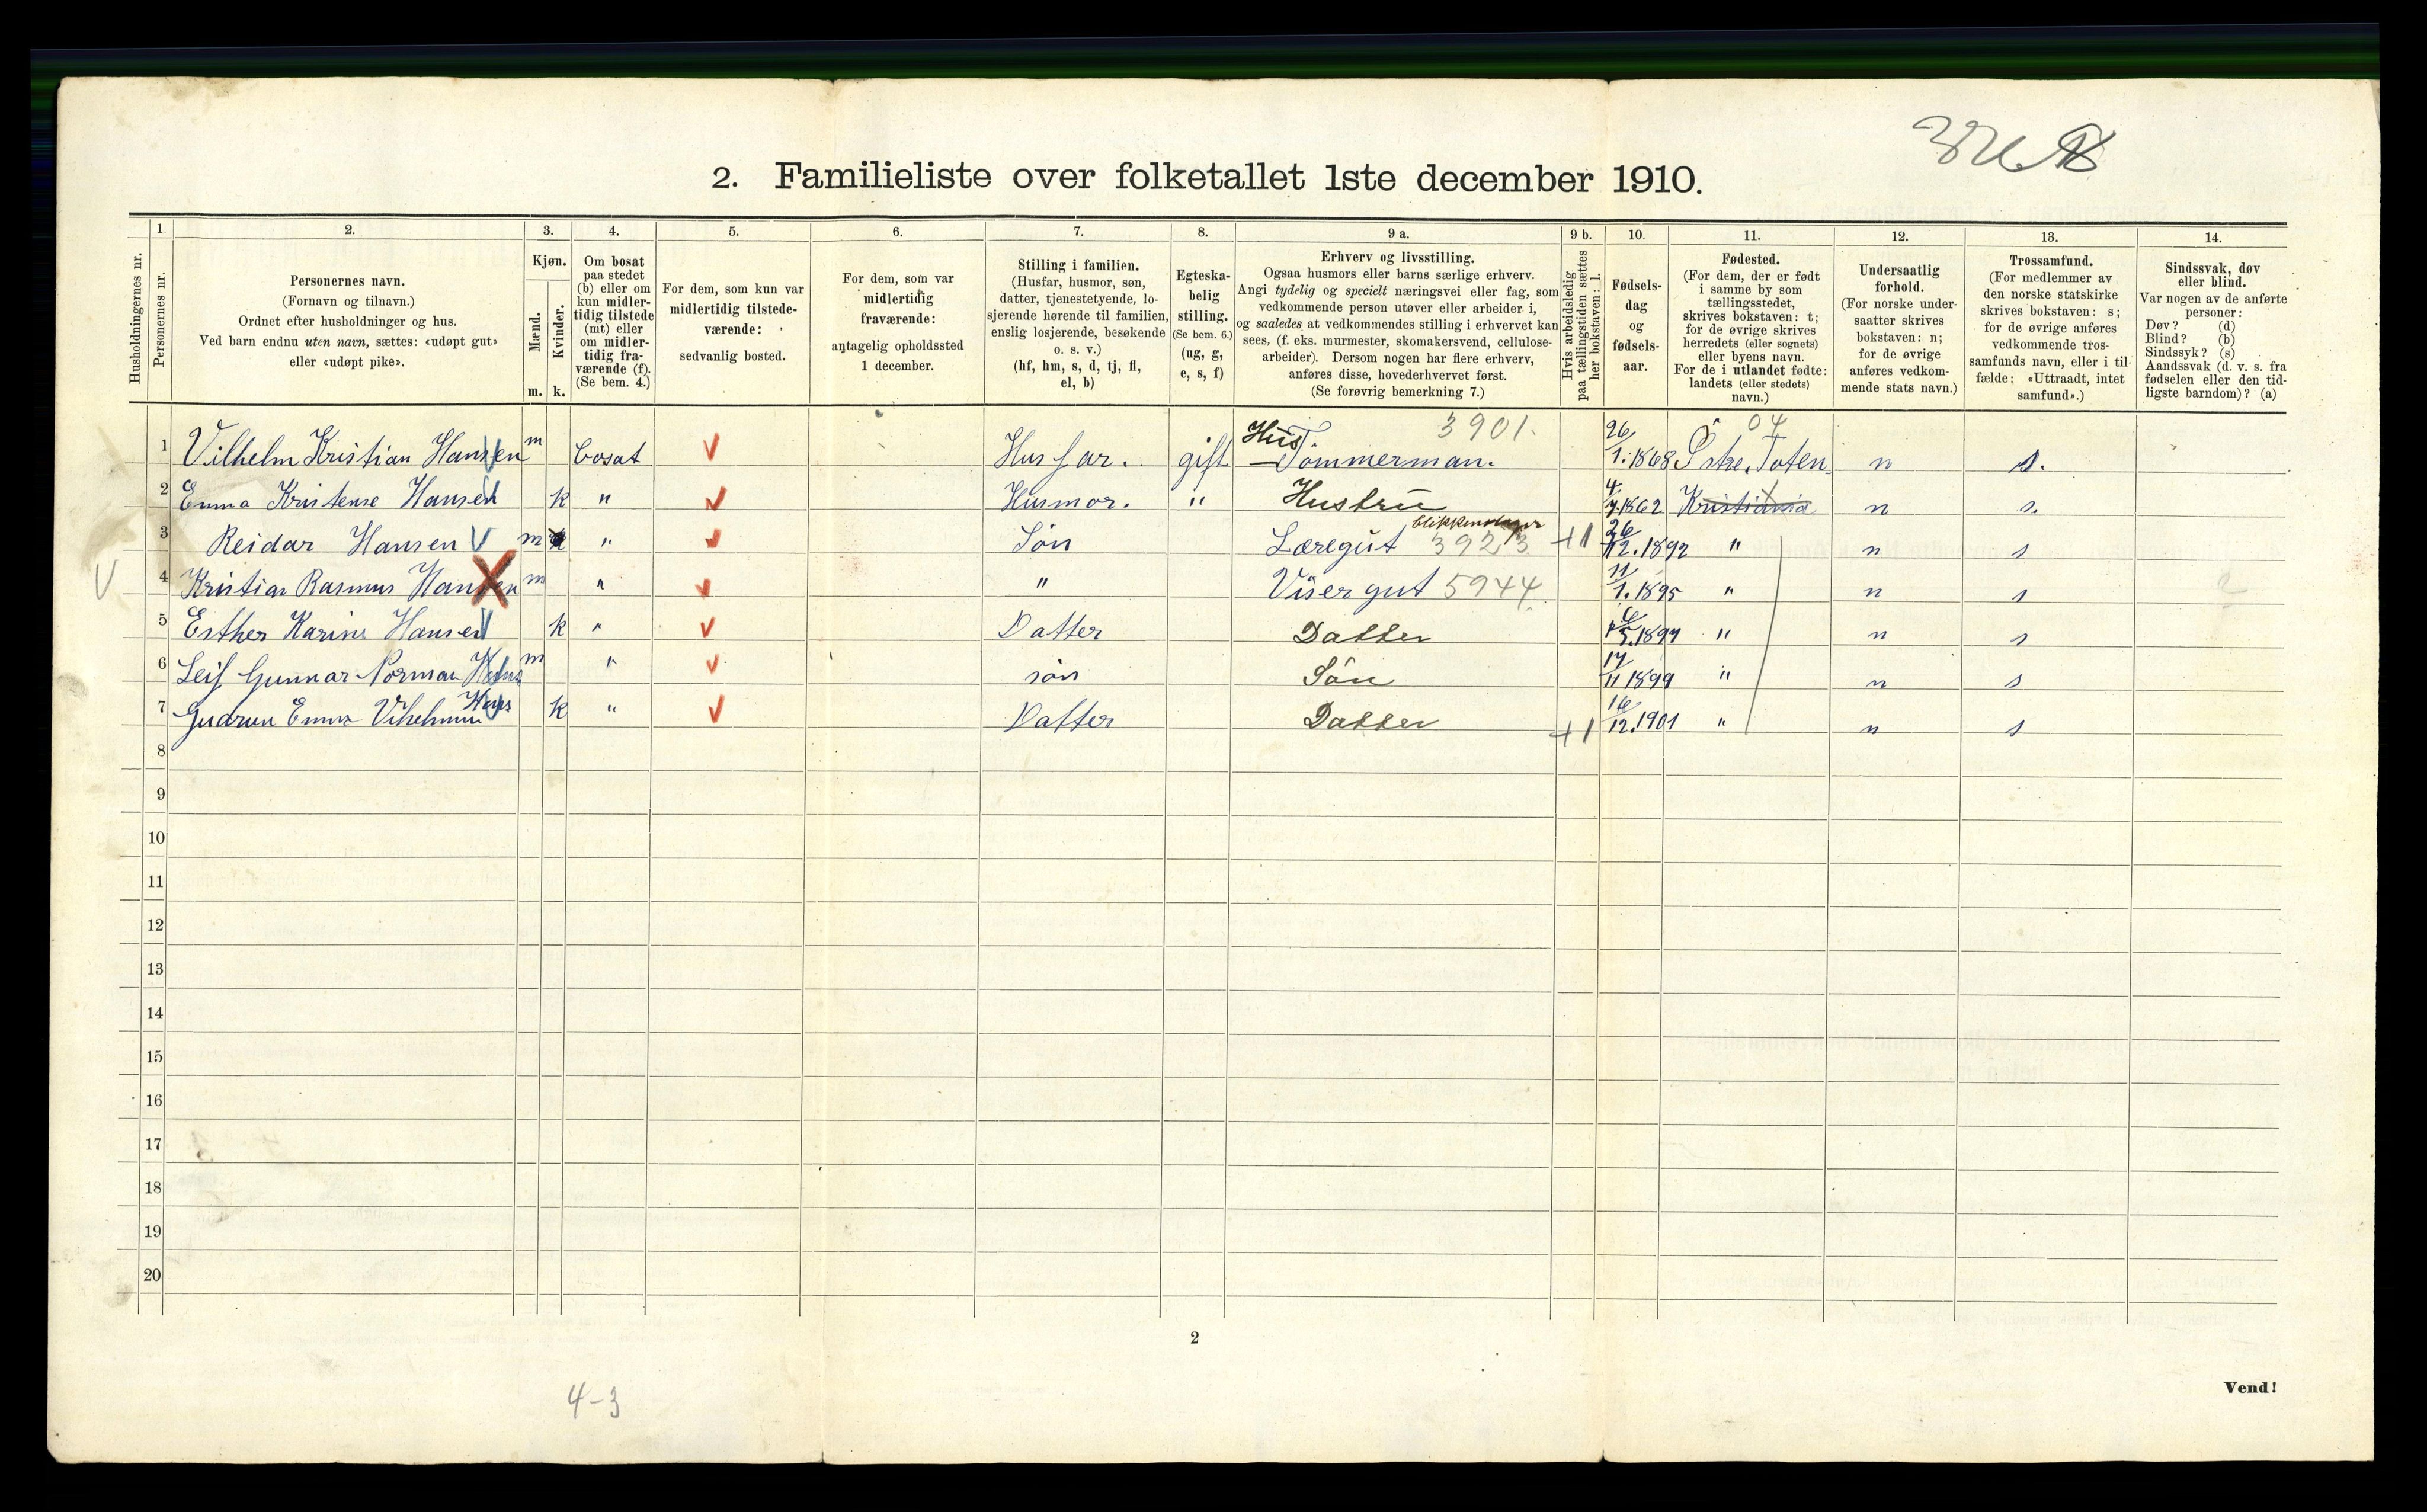 2. Familieliste over folketallet 1ste december 1910.
Husholdningernes nr.
1.
Personernes nr.
2.
Personernes navn.
(Fornavn og tilnavn.)
Ordnet efter husholdninger og hus.
Ved barn endnu uten navn, sættes: «udøpt gut»
eller «udøpt pike».
3.
Kjøn.
Mænd.
Kvinder.
m. k.
4.
Om bosat
paa stedet
(b) eller om
kun midler-
tidig tilstede
(mt) eller
om midler-
tidig fra-
værende (f).
(Se bem. 4.)
5.
For dem, som kun var
midlertidig tilstede-
værende:
sedvanlig bosted.
6.
For dem, som var
midlertidig
fraværende:
antagelig opholdssted
1 december.
7.
Stilling i familien.
(Husfar, husmor, søn,
datter, tjenestetyende, lo-
sjerende hørende til familien,
enslig losjerende, besøkende
o. s. v.)
(hf, hm, s, d, tj, fl,
el, b)
8.
Egteska-
belig
stilling.
(Se bem. 6.)
(ug, g,
e, s, f)
9 a.
Erhverv og livsstilling.
Ogsaa husmors eller barns særlige erhverv.
Angi tydelig og specielt næringsvei eller fag, som
vedkommende person utøver eller arbeider i,
og saaledes at vedkommendes stilling i erhvervet kan
sees, (f. eks. murmester, skomakersvend, cellulose-
arbeider). Dersom nogen har flere erhverv,
anføres disse, hovederhvervet først.
(Se forøvrig bemerkning 7.)
9 b.
Hvis arbeidsledig
paa tællingstiden sættes
her bokstaven: l.
10.
Fødsels-
dag
og
fødsels-
aar.
11.
Fødested.
(For dem, der er født
i samme by som
tællingsstedet,
skrives bokstaven: t;
for de øvrige skrives
herredets (eller sognets)
eller byens navn.
For de i utlandet fødte:
landets (eller stedets)
navn.)
12.
Undersaatlig
forhold.
(For norske under-
saatter skrives
bokstaven: n;
for de øvrige
anføres vedkom-
mende stats navn.)
13.
Trossamfund.
(For medlemmer av
den norske statskirke
skrives bokstaven: s;
for de øvrige anføres
vedkommende tros-
samfunds navn, eller i til-
fælde: «Uttraadt, intet
samfund».)
14.
Sindssvak, døv
eller blind.
Var nogen av de anførte
personer:
Døv? (d)
Blind? (b)
Sindssyk? (s)
Aandssvak (d. v. s. fra
fødselen eller den tid-
ligste barndom)? (a)
1 Vilhelm Kristian Hansen m bosat Husfar. gift Hus Tømmerman. 3901. 26/1. 1868 Østre. Toten 04 n s.
2 Emma Kristense Hansen k " Husmor. " Hustru 4/7. 1862 Kristiania n s.
3 Reidar Hansen m " Søn Læregut blikkenslager 3923 +1 26/12. 1892 " n s
4 Kristian Rasmus Hansen m " " Visergut 5944 11/1. 1895 " n s
5 Esther Karine Hansen k " Datter Datter 5. 1897 " n s
6 Leif Gunnar Norman Hans m " søn Søn 17/11 1899 " n s
7 Gudrun Emma Vilhelmine Hans k " Datter Datter +1 16/12. 1901 " n s
8
9
10
11
12
13
14
15
16
17
18
19
20
2
4-3
Vend!